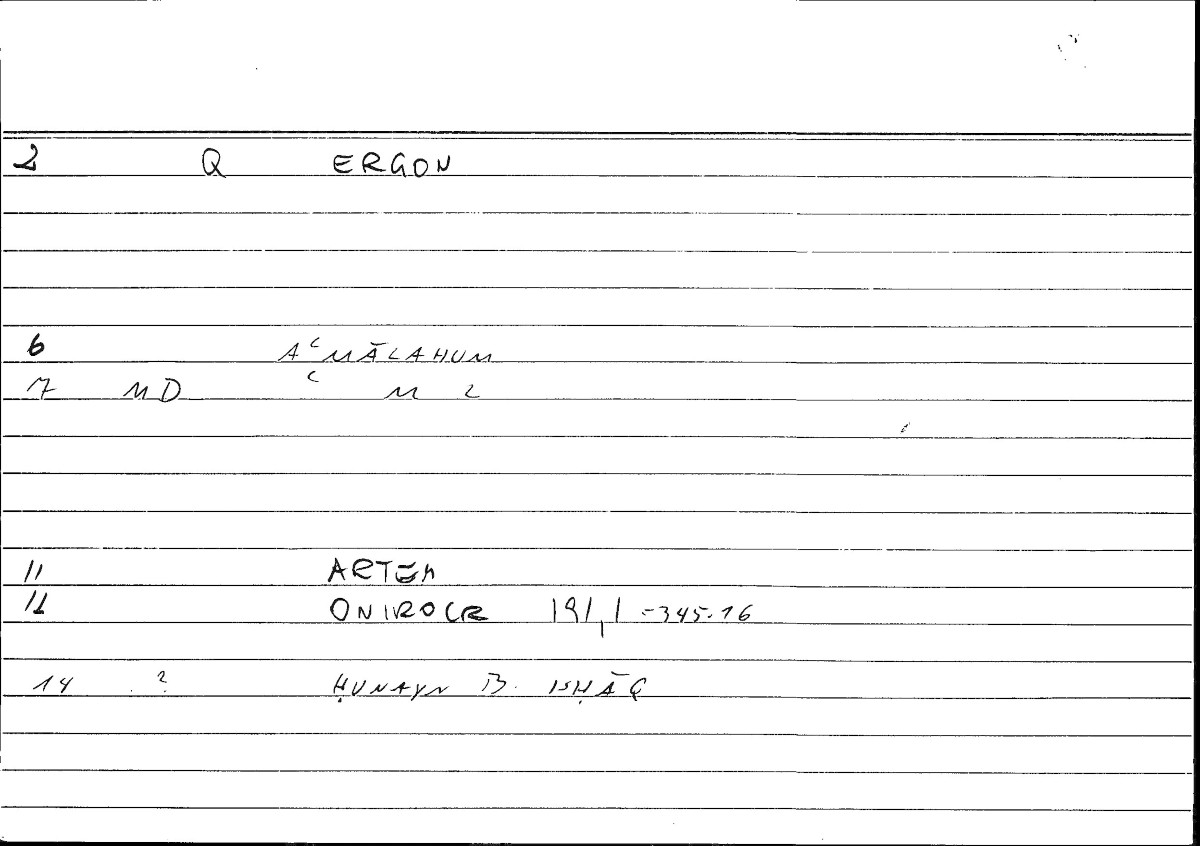 2 Q ERGON
6 AʿMĀLAHUM
7 MD ʿ M L
11 ARTEM
12 ONIROCR 191,1 = 345.16
14 ? ḤUNAYN B. ISḤĀQ